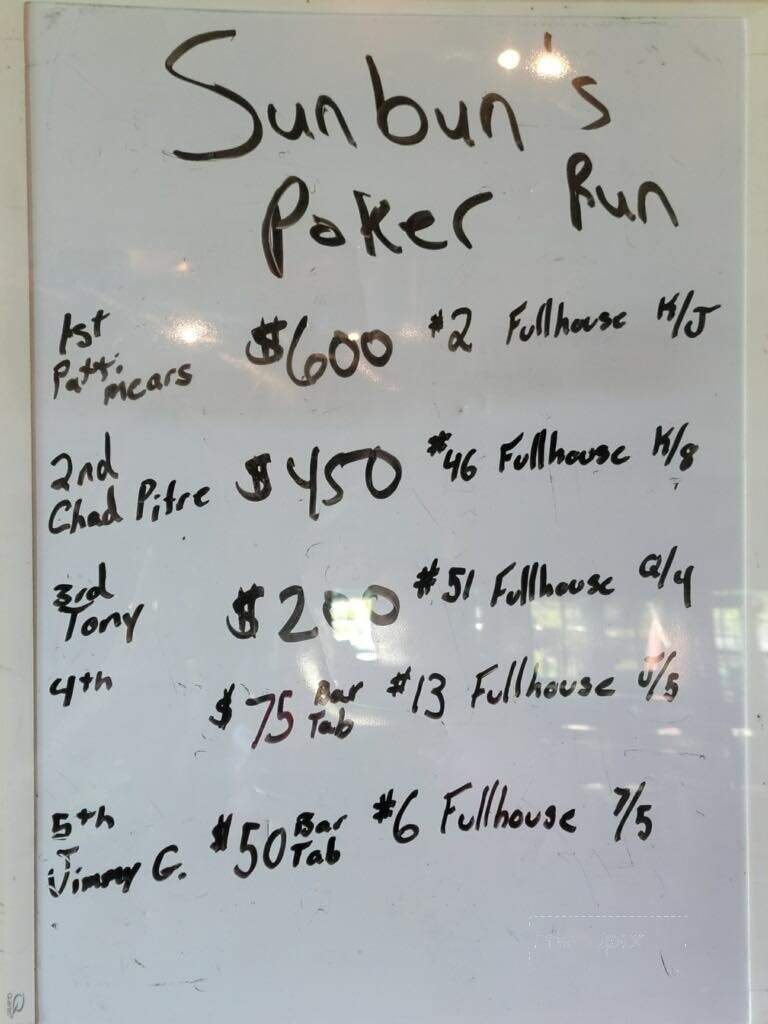 Sunbun's
Poker Run
1st
Patti Mears
$600 #2 Fullhouse K/J
2nd
Chad Pitre
$450 #46 Fullhouse K/8
3rd
Tony
$200 #51 Fullhouse Q/4
4th
$75 Bar Tab #13 Fullhouse J/5
5th
Jimmy G.
$50 Bar Tab #6 Fullhouse 7/5